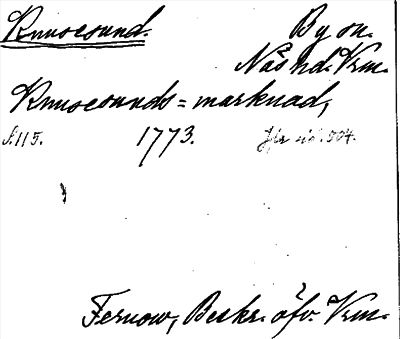 Knusesund. By sn.
Näs hd. Vrm.
Knusesunds-marknad,
S. 115. 1773. Jfr sid. 504.
Fernow, Beskr. öfv. Vrm.